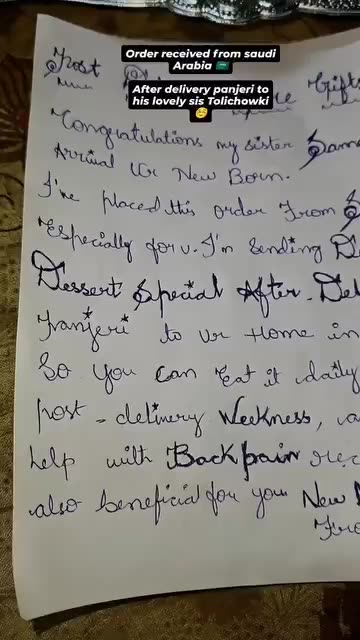 Order received from saudi
Arabia 🇸🇦
After delivery panjeri to
his lovely sis Tolichowki
🥹
Post
Gifts
Congratulations my sister
Arrival Ur New Born.
I've placed this order From
Especially for u. I'm Sending
Dessert Special After-Del
Panjeri to Ur Home in
So You Can Eat it daily
post-delivery Weekness,
help with Back pain rec
also beneficial for your New
Fro